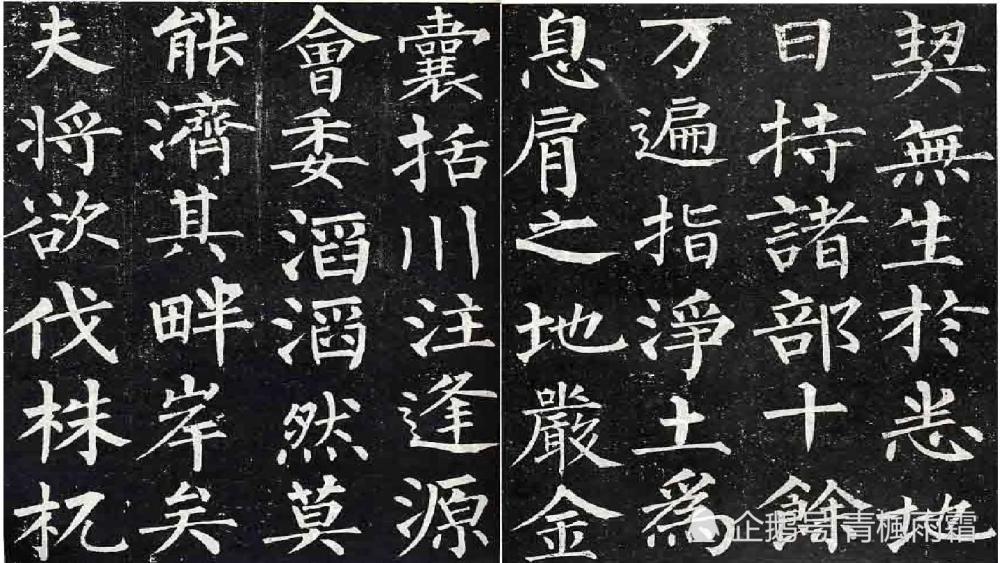 契無生於悉地
日持諸部十餘
万遍指淨土爲
息肩之地嚴金
囊括川注逢源
會委滔滔然莫
能濟其畔岸矣
夫将欲伐株杌
企鹅号 青楓雨霜